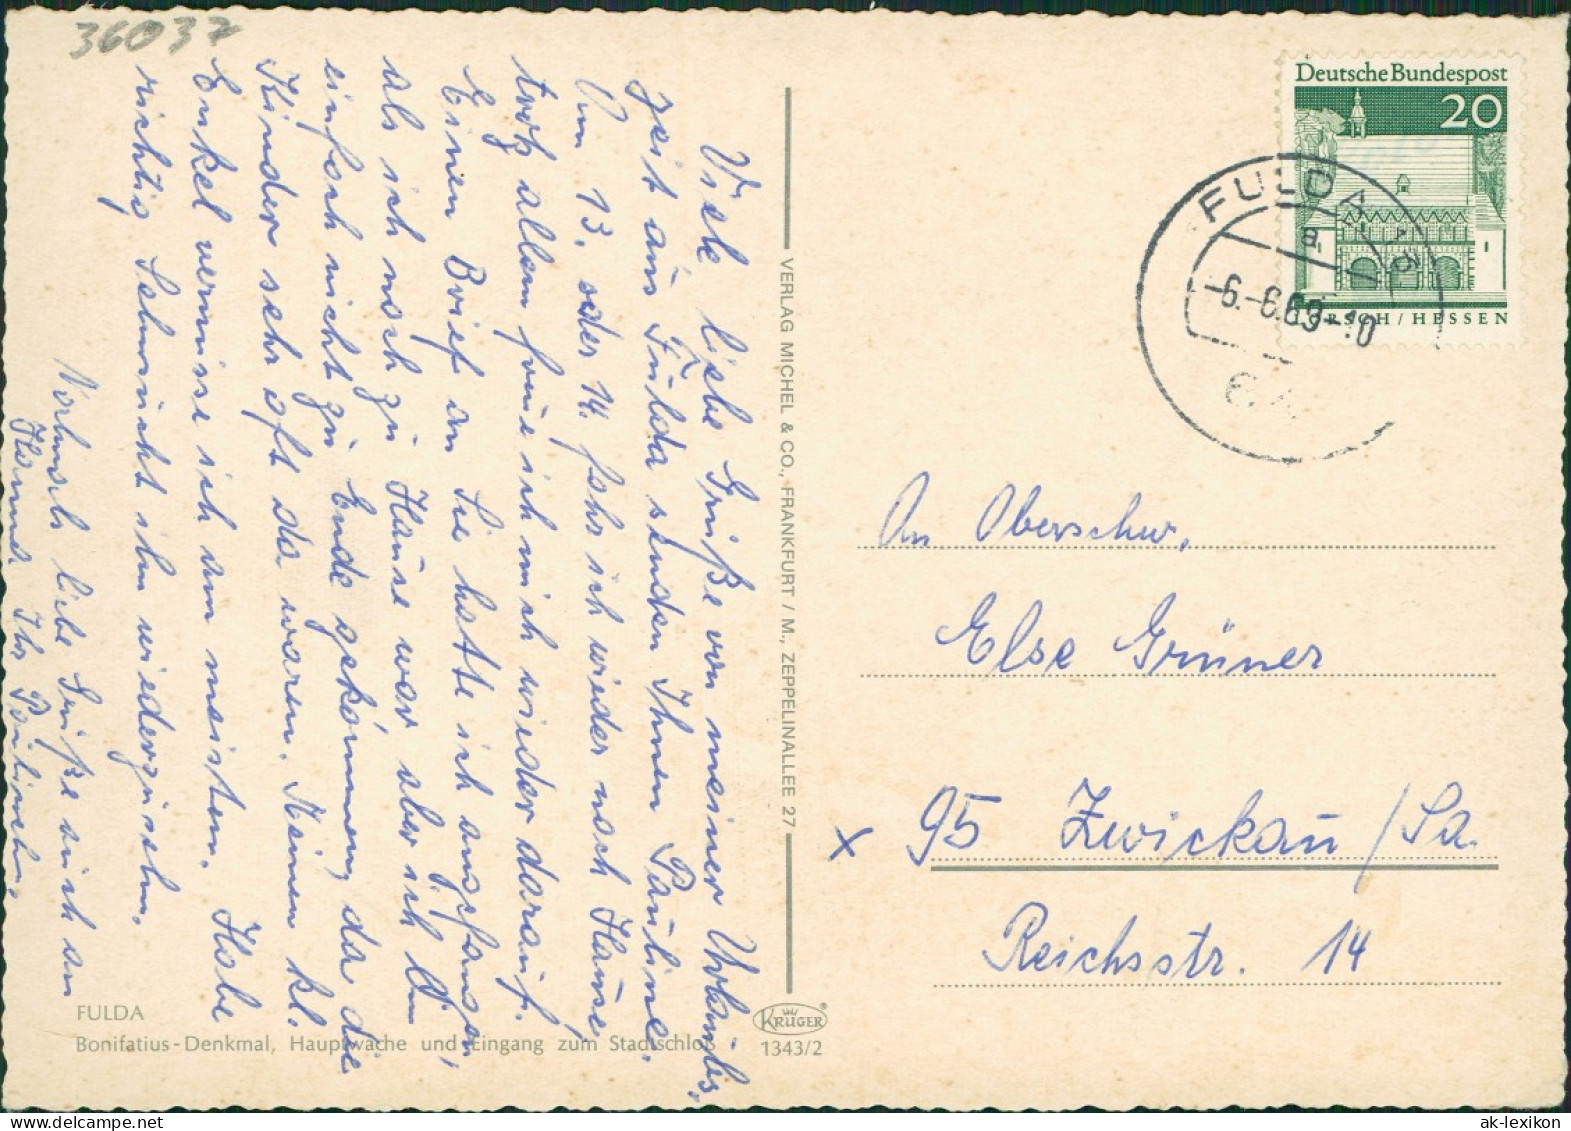 36037
Viele liebe Grüße von meiner Urlaubs-
zeit aus Fulda senden Ihnen Pauline.
Am 13. oder 14. fahr ich wieder nach Hause,
trotz allem freue ich mich wieder darauf.
Einen Brief an Sie hatte ich angefangen,
als ich noch zu Hause war aber ich
einfach nicht zu Ende gekommen, da die
Kinder sehr oft da waren. Meinen kl.
Enkel vermisse ich am meisten. Habe
richtig Sehnsucht ihn wiederzusehn.
Nochmals liebe Grüße auch an
Hanna Ihr Paulinchen.
FULDA
Bonifatius-Denkmal, Hauptwache und Eingang zum Stadtschloß
VERLAG MICHEL & CO., FRANKFURT / M., ZEPPELINALLEE 27
KRÜGER
1343/2
Deutsche Bundespost
20
LORSCH / HESSEN
FULDA
a
-6.-6.69-10
An Oberschw.
Else Grüner
x 95 Zwickau / Sa.
Reichsstr. 14
ak-lexikon